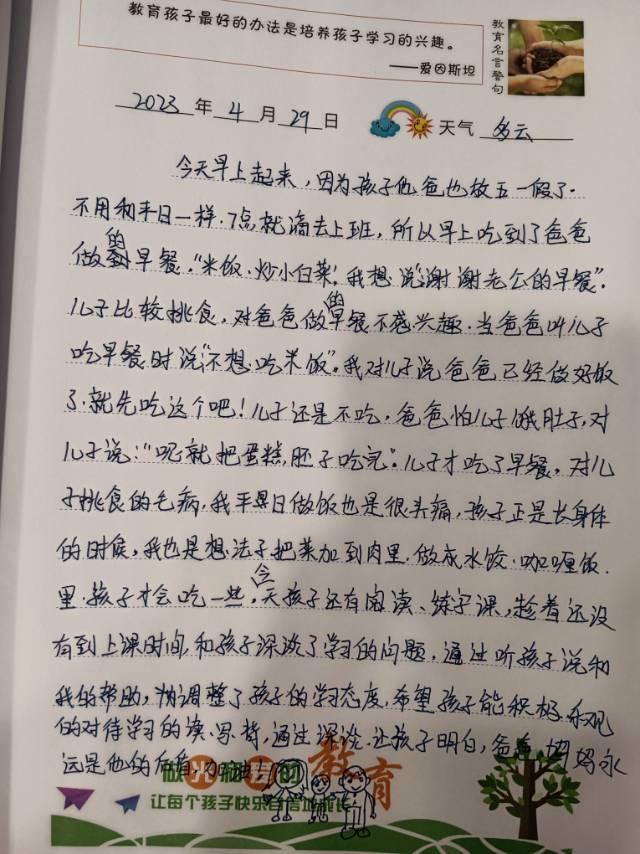 教育孩子最好的办法是培养孩子学习的兴趣。
——爱因斯坦
教育名言警句
2023年4月29日 天气 多云
今天早上起来，因为孩子他爸也放五一假了.
不用和平日一样.7点就滴去上班，所以早上吃到了爸爸
做的早餐."米饭.炒小白菜".我想说"谢谢老公的早餐".
儿子比较挑食，对爸爸做的早餐不感兴趣.当爸爸叫儿子
吃早餐时说"不想.吃米饭".我对儿子说爸爸已经做好饭
了.就先吃这个吧！儿子还是不吃.爸爸怕儿子饿肚子，对
儿子说："呢就把蛋糕，胚子吃完".儿子才吃了早餐。对儿
子挑食的毛病，我平日做饭也是很头痛，孩子正是长身体
的时候，我也是想法子把菜加到肉里.做成水饺.咖喱饭.
里.孩子才会吃一些，今天孩子还有阅读、练字课，趁着还没
有到上课时间，和孩子深谈了学习的问题，通过听孩子说和
我的帮助，调整了孩子的学习态度，希望孩子能积极.乐观
的对待学习的读.写.背，通过深谈.让孩子明白，爸爸妈妈永
远是他的
教育
让每个孩子快乐自信地成长